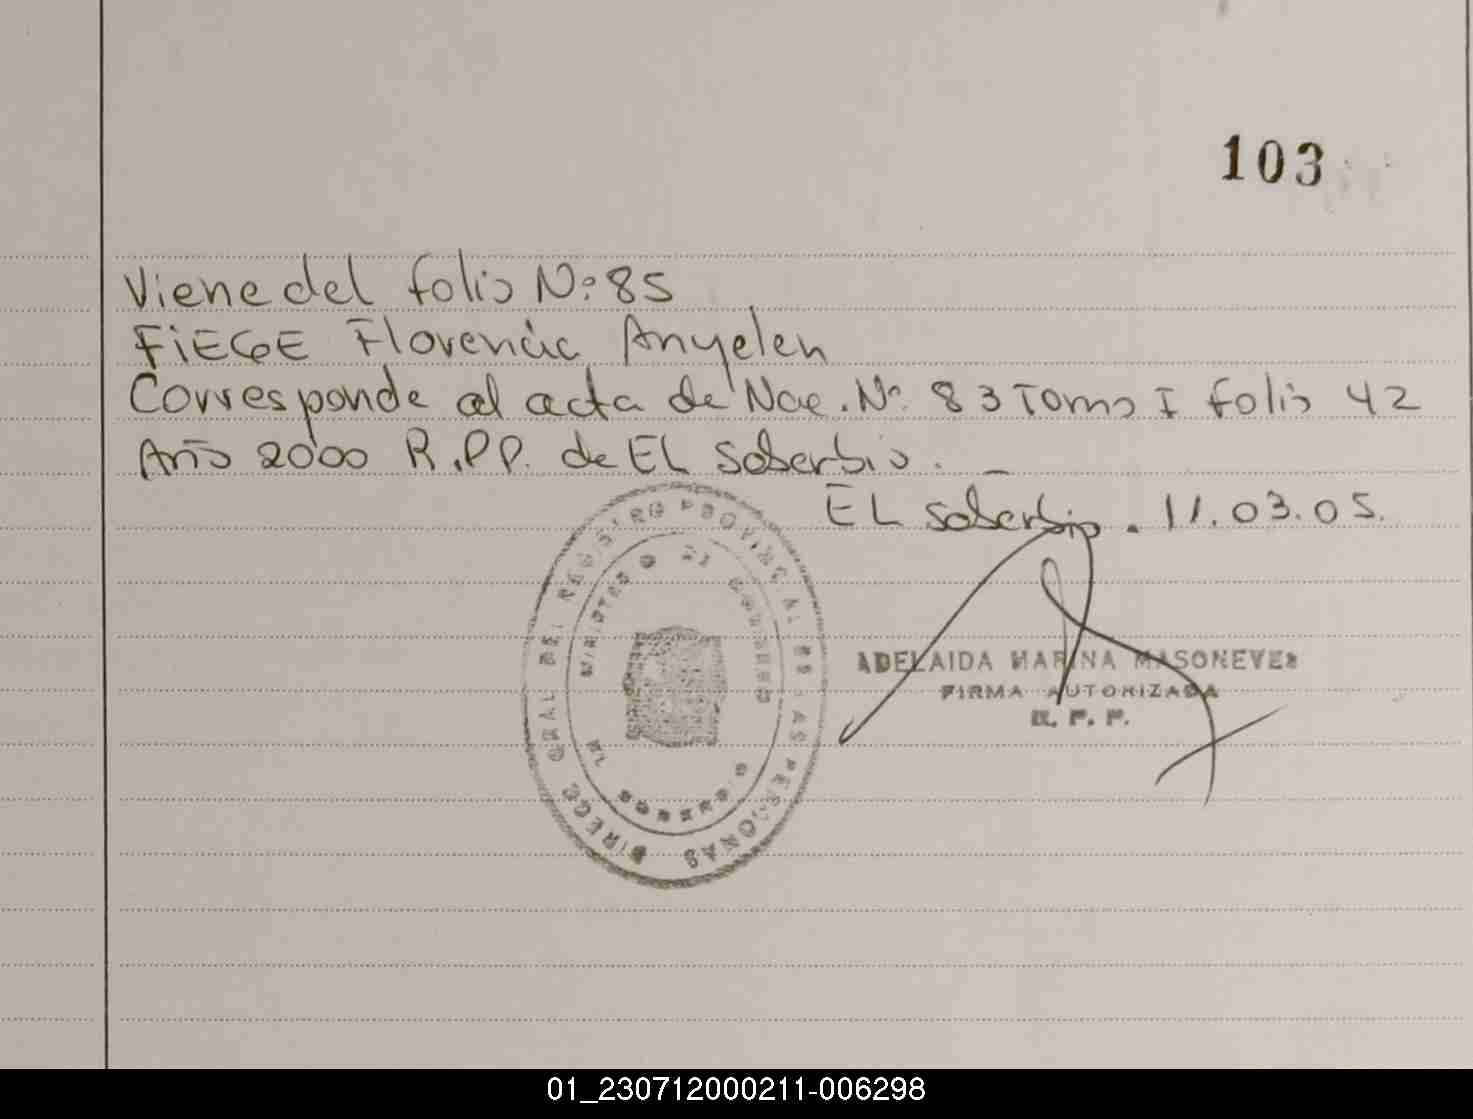 103
Viene del folio Nº: 85
FiEGE Florencia Anyelen
Corresponde al acta de Nac. Nº. 83 Tomo I folio 42
Año 2000 R.P.P. de EL Soberbio. _
EL Soberbio. 11.03.05.
DIRECC GRAL DEL REGISTRO PROVINCIAL DE LAS PERSONAS
MINISTERIO DE GOBIERNO
ADELAIDA MARINA MASONEVES
FIRMA AUTORIZADA
R. P. P.
01_230712000211-006298